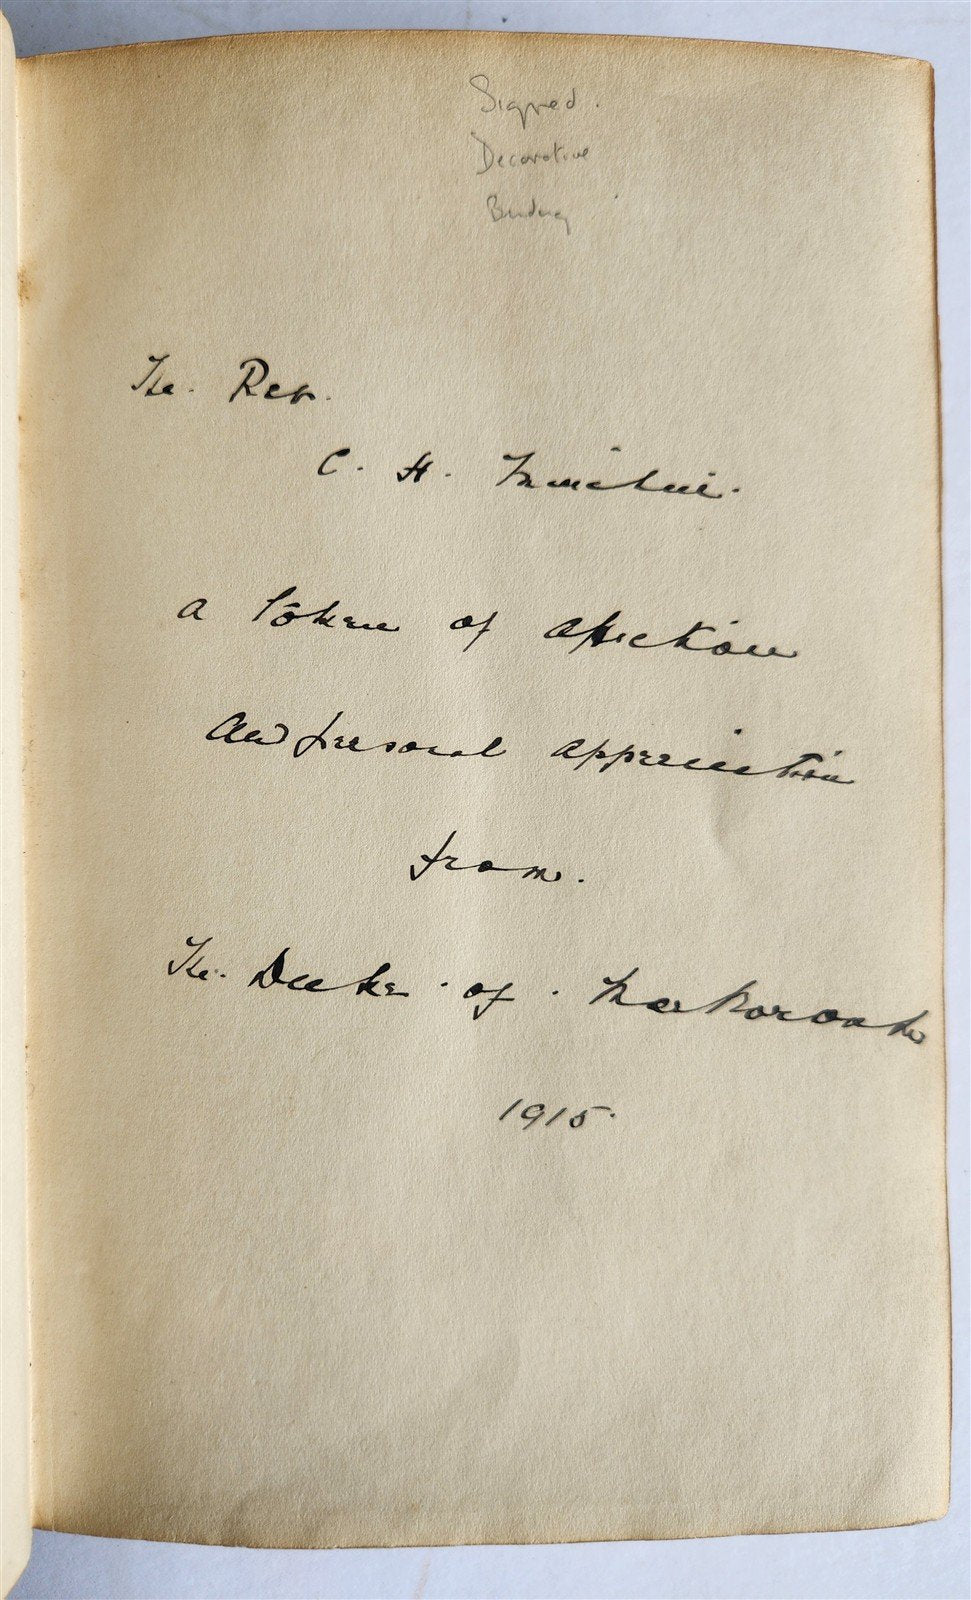 Signed.
Decorative
Binding
The. Rev.
C. H.
a token of affection
and personal appreciation
from.
The. Duke. of. Marlborough
1915.